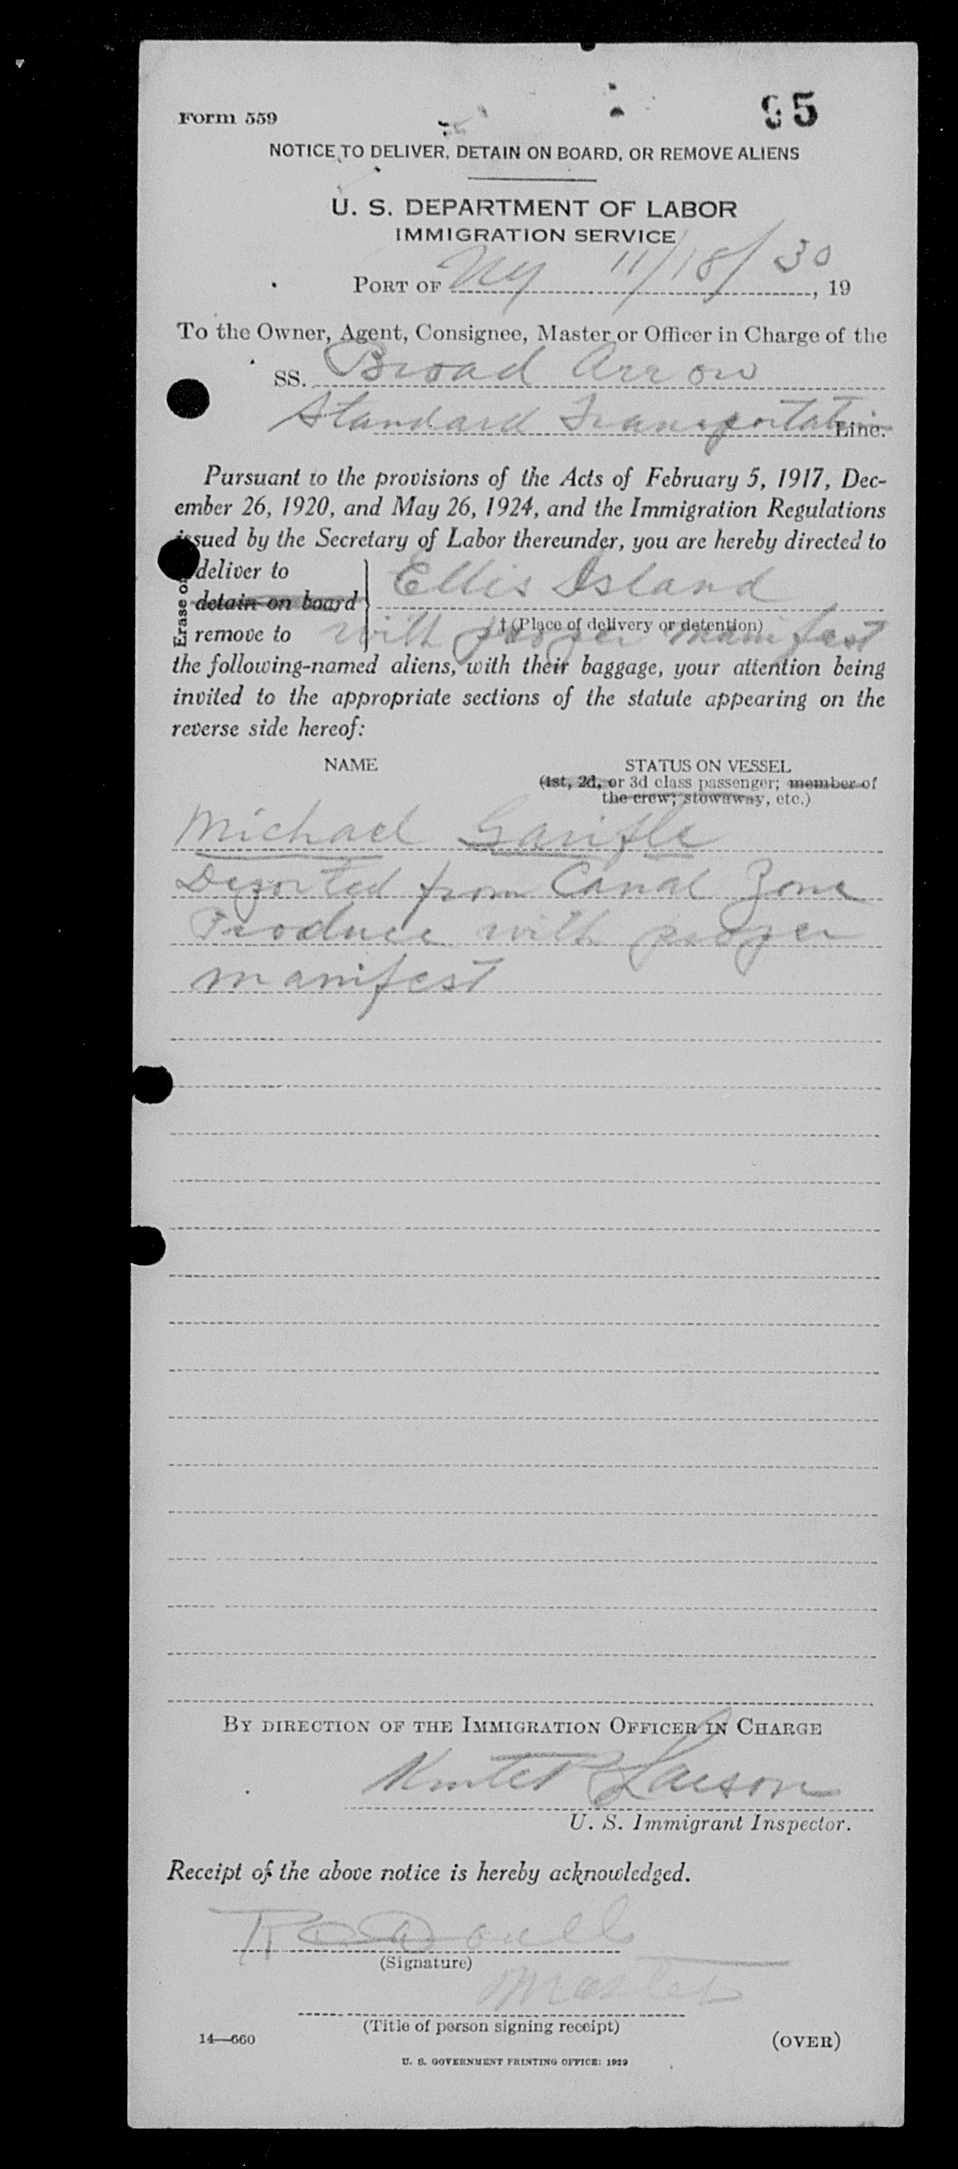 Form 559
95
NOTICE TO DELIVER, DETAIN ON BOARD, OR REMOVE ALIENS
U. S. DEPARTMENT OF LABOR
IMMIGRATION SERVICE
PORT OF NY 11/18/30, 19
To the Owner, Agent, Consignee, Master or Officer in Charge of the
SS. Broad Arrow
Standard Transportation Line.
Pursuant to the provisions of the Acts of February 5, 1917, Dec-
ember 26, 1920, and May 26, 1924, and the Immigration Regulations
issued by the Secretary of Labor thereunder, you are hereby directed to
Erase
deliver to
detain on board Ellis Island
† (Place of delivery or detention)
remove to with proper manifest
the following-named aliens, with their baggage, your attention being
invited to the appropriate sections of the statute appearing on the
reverse side hereof:
NAME STATUS ON VESSEL
(1st, 2d, or 3d class passenger; member of
the crew; stowaway, etc.)
Michael
Deported from Canal Zone
Produce with proper
manifest
BY DIRECTION OF THE IMMIGRATION OFFICER IN CHARGE
Larson
U. S. Immigrant Inspector.
Receipt of the above notice is hereby acknowledged.
(Signature)
Master
(Title of person signing receipt)
14—660
(OVER)
U. S. GOVERNMENT PRINTING OFFICE: 1929